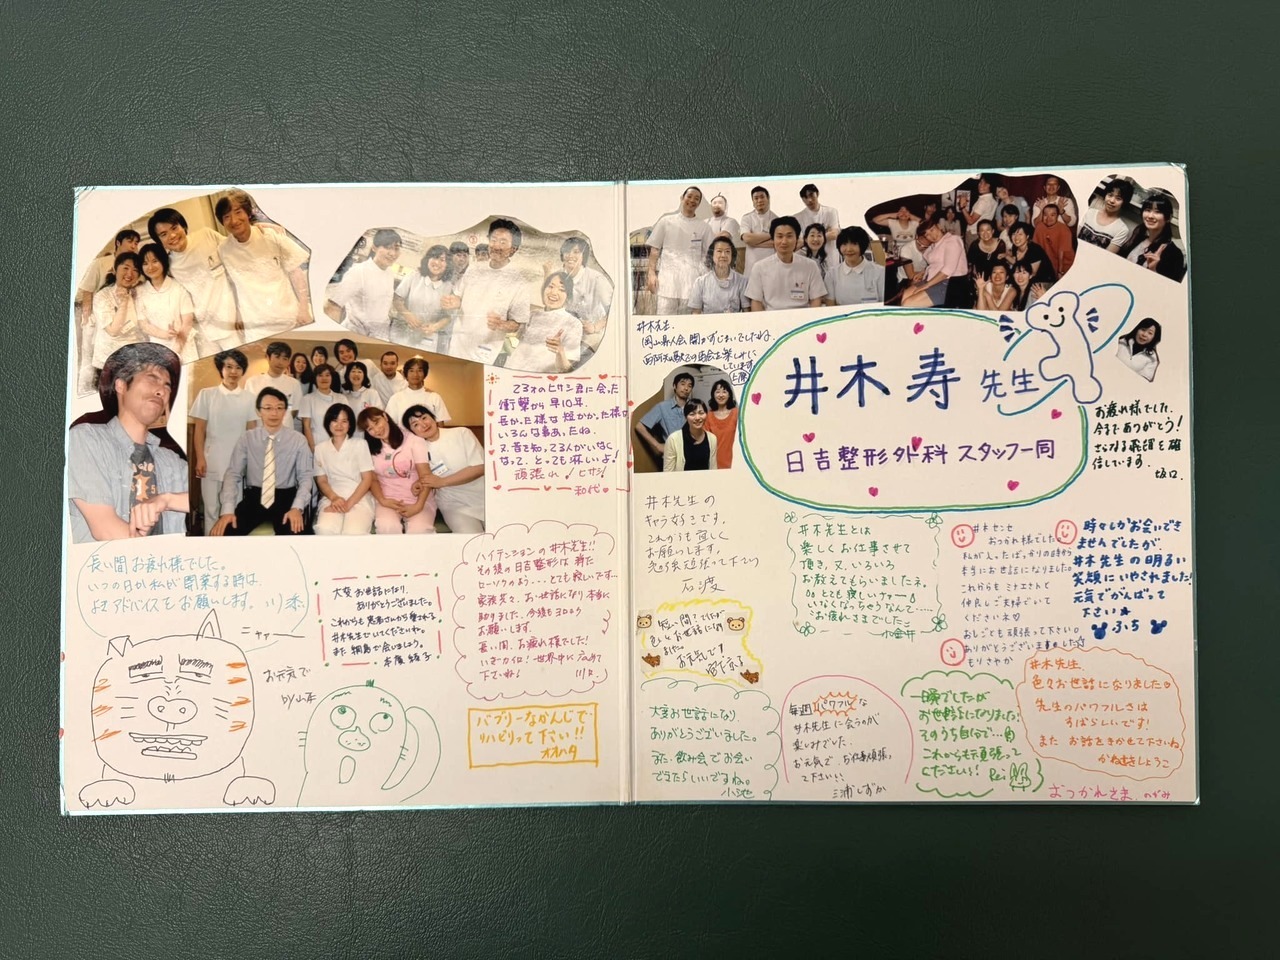 井木 寿 先生
日吉整形外科 スタッフ一同
井木先生、
お疲れ様でした。
今まであり がとう!
さらなる飛躍を確
信しています。
坂口
23才のヒサシ君に会った
衝撃から早10年、
長かった様な短かった様な
いろんな事あったね。
又、昔を知ってる人がいなく
なって、とっても淋しいよ!
頑張れ!ヒサシ!
和代
長い間お疲れ様でした。
いつの日か私が開業する時は、
よきアドバイスをお願いします。
ニャァー
お元気で
大変お世話になり、
ありがとうございました。
これからも患者さんから愛される
井木先生でいてくださいね。
また、綱島で会いましょう。
ハイテンションの井木先生!!
その後の日吉整形は 静た
とても寂しいです…
お世話になり本当に
助りました。今後もヨロシク
お願いします。
長い間、お疲れ様でした!
世界中に広めて
下さいね!
バブリーなかんじで
リハビリって下さい!!
オオハタ
井木先生の
キャラ好きです。
これからも宜しく
お願いします。
石渡
井木先生とは
楽しくお仕事させて
頂き、又、いろいろ
お教えてもらいましたネ。
とても寂しいナァー
いなくなっちゃうなんて…
お疲れさまでした
小金井
井木センセ
おつかれ様でした
私が入ったばっかりの時から
本当にお世話になりました。
仲良しご夫婦でいて
ください
おしごとも頑張って下さい。
ありがとうございました
もりさやか
時々しかお会いでき
ませんでしたが、
井木先生の明るい
笑顔にいやされました!
元気でがんばって
下さい★
ふち
大変お世話になり、
ありがとうございました。
また、飲み会でお会い
できたらいいですね。
小池
毎週パワフルな
井木先生に会うのが
楽しみでした。
お元気で、お仕事頑張っ
て下さい!!
三浦しずか
一瞬でしたが
お世話になりました!
そのうち自分で…
これからも頑張って
くださいっ!
Rei
井木先生、
色々お世話になりました
先生のパワフルさは
すばらしいです!
また お話をきかせて下さいね
かねまきしょうこ
おつかれさま、のがみ